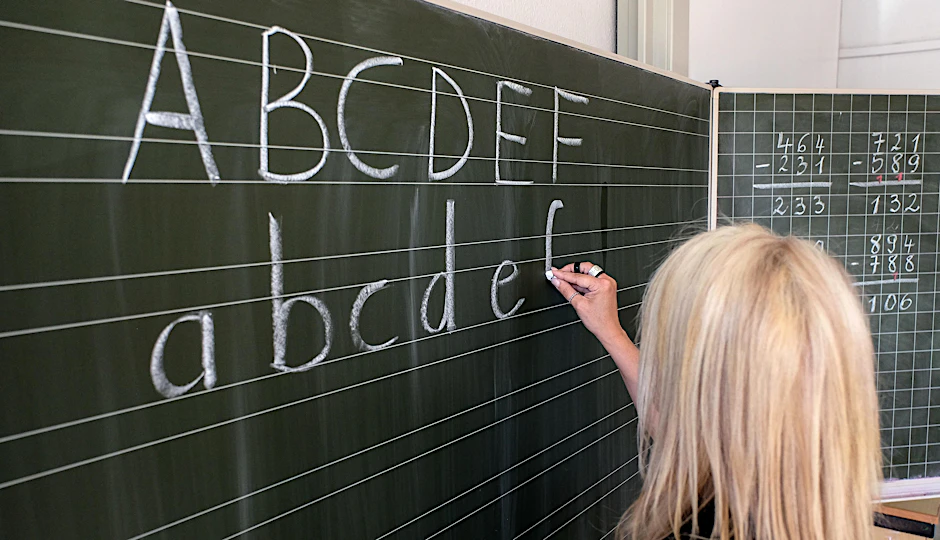 A B C D E F
a b c d e f
464 721
-231 -589
233 132
894
-788
106